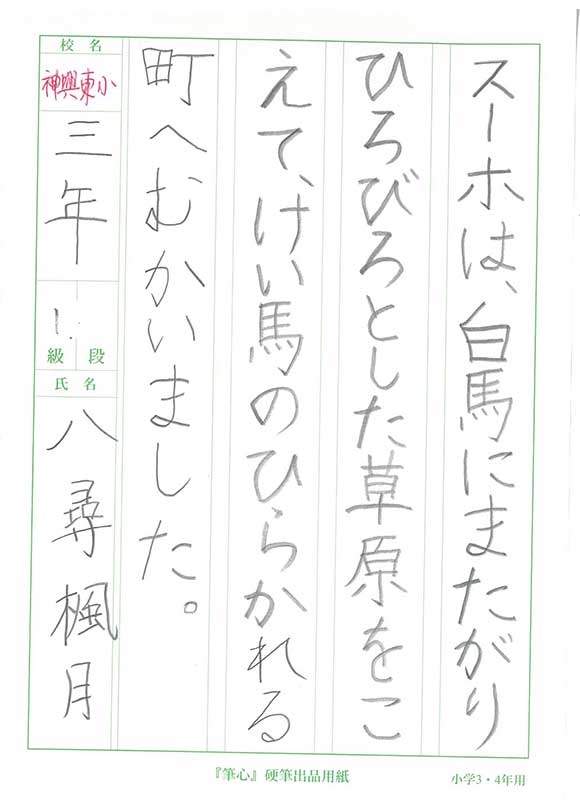 スーホは、白馬にまたがり
ひろびろとした草原をこ
えて、けい馬のひらかれる
町へむかいました。
校名
神興東小
三年
1.
級段
氏名
八尋楓月
『筆心』硬筆出品用紙
小学3・4年用